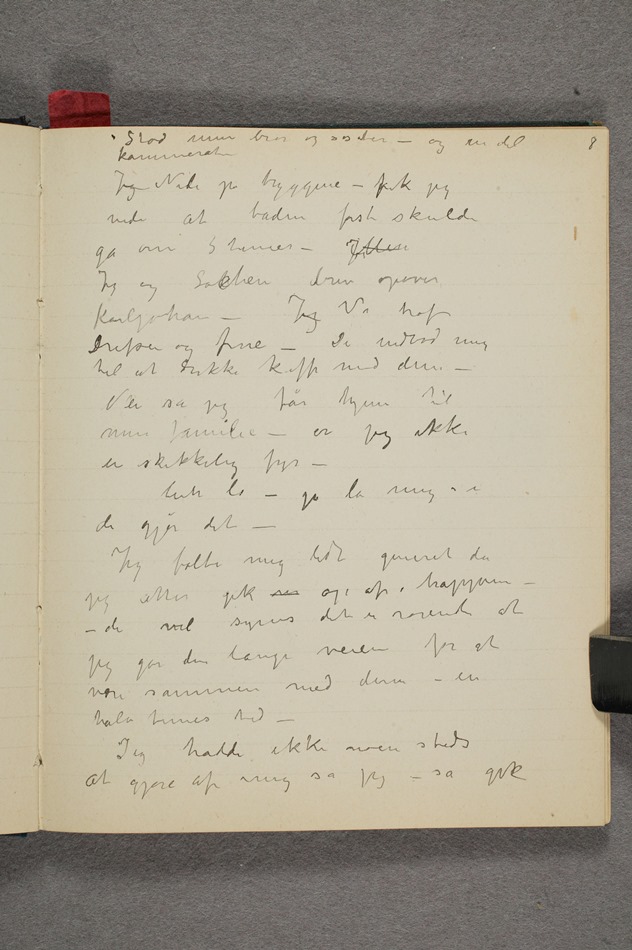 Stod min bror og søster – og en del 8
kammerater
Jeg Nede på bryggene – fik jeg
vide at båden først skulde
gå om 5 timer –
Jeg og drev opover
Karljohan – Jeg Vi traf
og frue – De indbød mig
til at drikke kaffe med dem –
Nei sa jeg får hjem til
min familie – er jeg ikke
en skikkelig fyr –
lo – ja la mig se
de gjør det –
Jeg følte mig lidt generet da
jeg atter gik op af trappen –
– de vel synes det er rørende at
jeg gør den lange veien for at
være sammen med dem – en
halv times tid –
Jeg hadde ikke noen steds
at gjøre af mig sa jeg – så gik